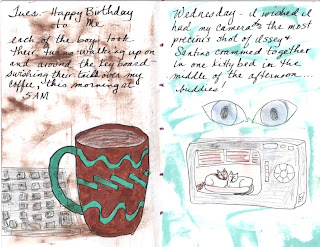 Tues. Happy Birthday
to Me.
each of the boys took
their turns walking up on
and around the keyboard
swishing their tails over my
coffee, this morning at
5AM
Wednesday - I wished I
had my camera the most
precious shot of Ossey &
Santino crammed together
in one kitty bed in the
middle of the afternoon...
buddies!